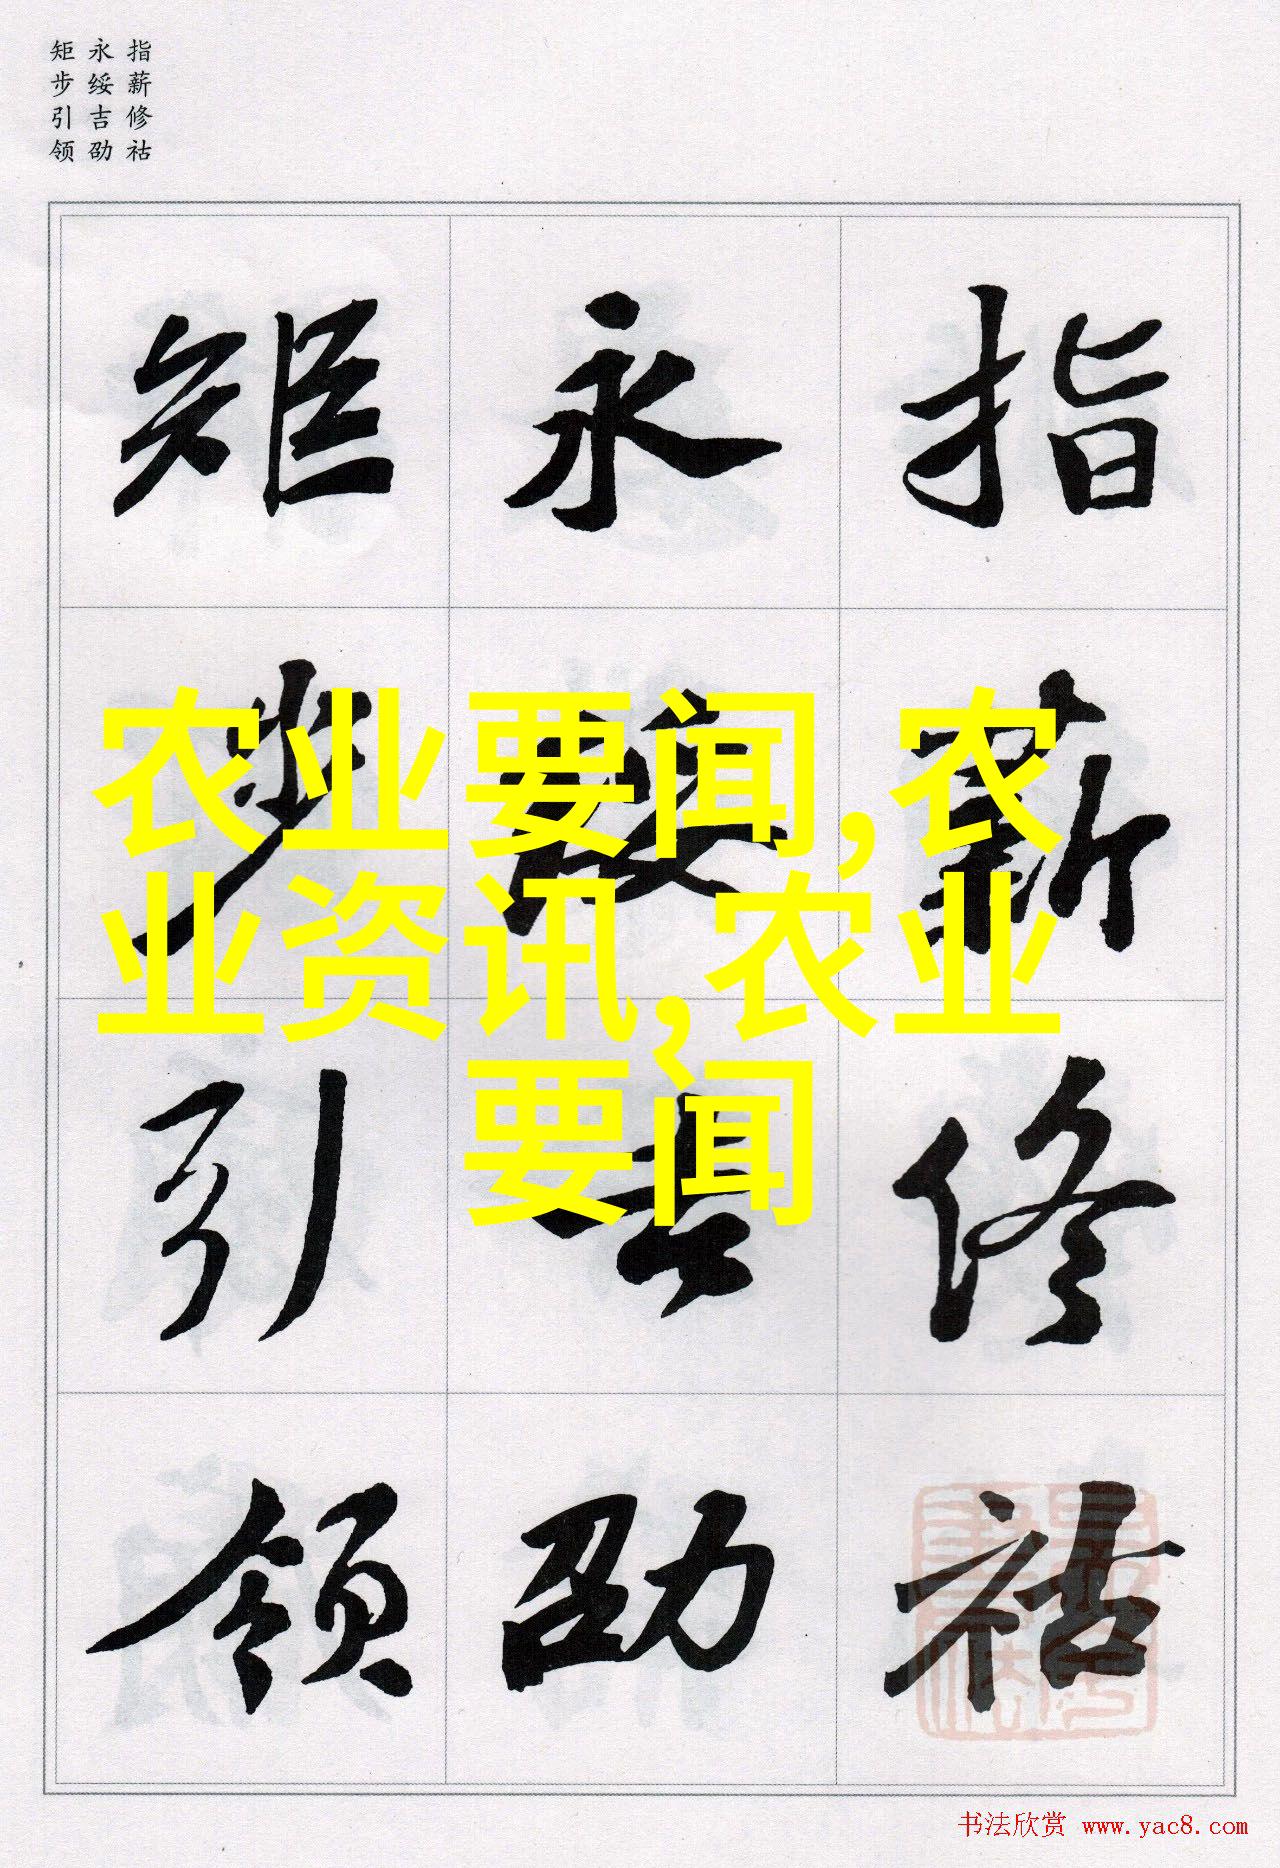 指薪修祜
永绥吉劭
矩步引领
指薪修祜
永绥吉劭
矩步引领
农业要闻,农
业资讯,农业
要闻
书法欣赏 www.yac8.com